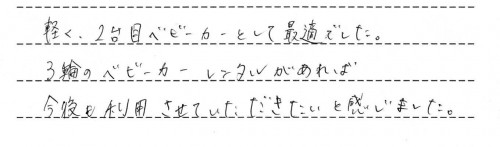 軽く、2台目ベビーカーとして最適でした。
3輪のベビーカーレンタルがあれば
今後も利用させていただきたいと感じました。